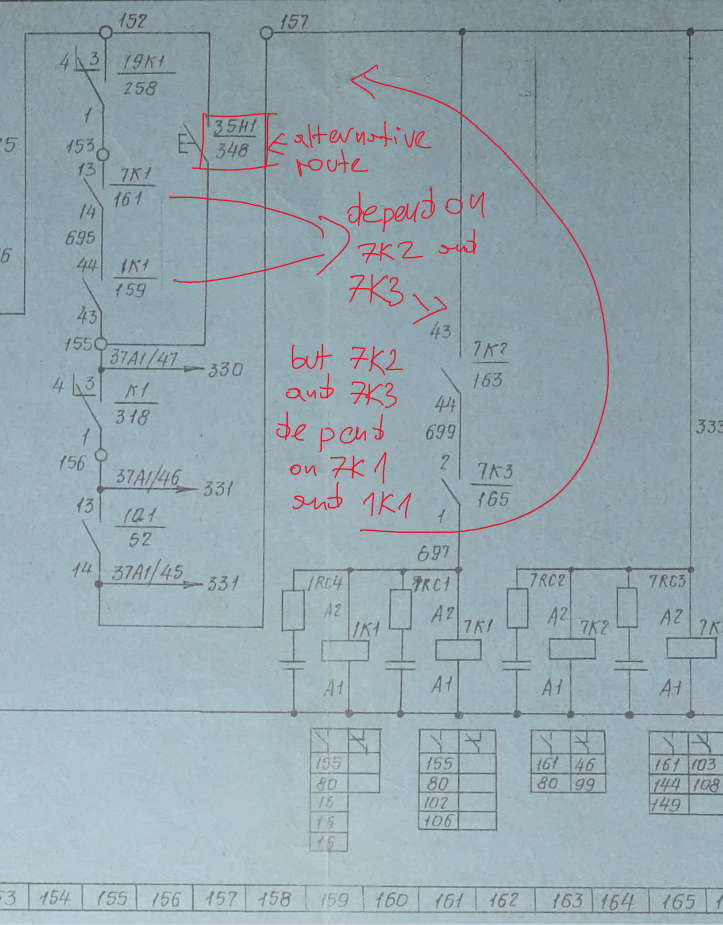 152
157
4 3
19K1
258
1
153
13
7K1
161
14
695
44
1K1
159
43
155
37A1/47
330
4 3
K1
318
1
156
37A1/46
331
13
1Q1
52
14
37A1/45
331
E
35H1
348
alternative
route
depend on
7K2 and
7K3
but 7K2
and 7K3
depend
on 7K1
and 1K1
43
7K2
163
44
699
2
7K3
165
1
697
333
1RC4
A2
1K1
A1
7RC1
A2
7K1
A1
7RC2
A2
7K2
A1
7RC3
A2
7K
A1
155
80
15
15
15
155
80
102
106
161 46
80 99
161 103
144 108
149
53 154 155 156 157 158 159 160 161 162 163 164 165 1